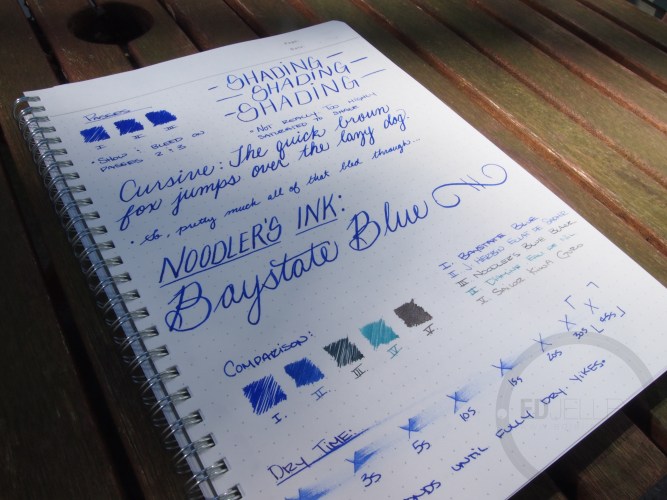 -SHADING-
-SHADING-
-SHADING-
PASSES
I II III
• SHOW & BLEED ON
PASSES 2 & 3
• NOT REALLY. TOO HIGHLY
SATURATED TO SHADE
Cursive: The quick brown
fox jumps over the lazy dog.
• pretty much all of that bled through...
NOODLER'S INK:
Baystate Blue
I. BAYSTATE BLUE
II J HERBIN
III NOODLER'S BLUE BLACK
II
I SAILOR KIWA GURO
COMPARISON:
I. II. III IV V
DRY TIME:
3S 5S 10S 15S 20S 30S 65S
UNTIL FULLY DRY. YIKES.
ED JELLEY